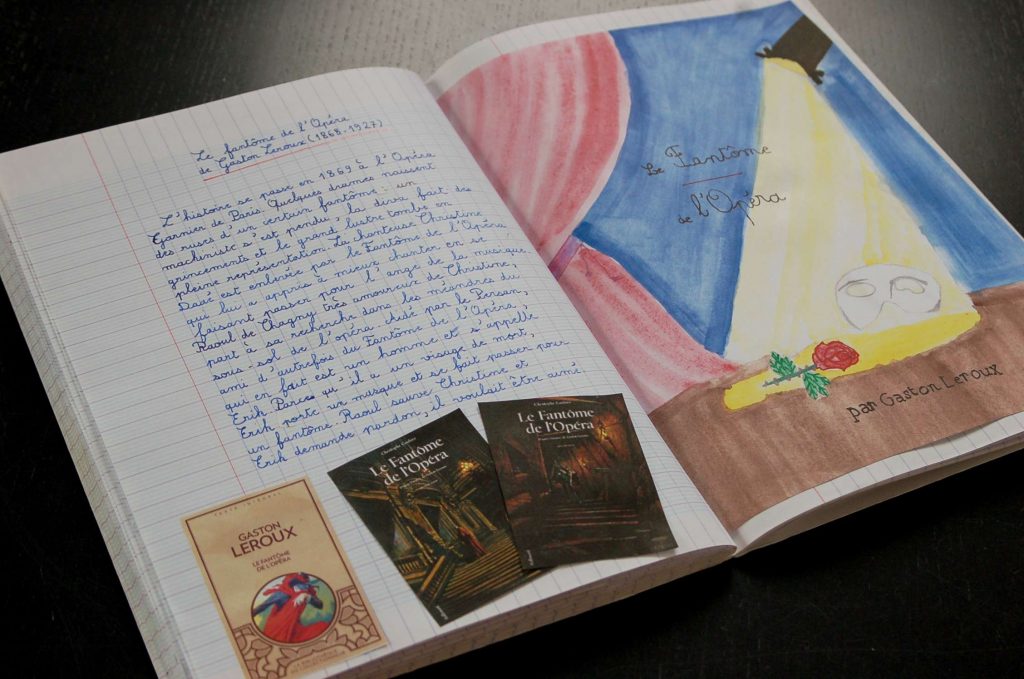 Le fantôme de l'Opéra
de Gaston Leroux (1868-1927)
L'histoire se passe en 1869 à l'Opéra
Garnier de Paris. Quelques drames naissent
des ruses d'un certain fantôme : un
machiniste s'est pendu, la diva fait des
grincements et le grand lustre tombe en
pleine représentation. La chanteuse Christine
Daaé est enlevée par le Fantôme de l'Opéra
qui lui a appris à mieux chanter en se
faisant passer pour l'ange de la musique.
Raoul de Chagny très amoureux de Christine,
part à sa recherche dans les méandres du
sous-sol de l'opéra. Aidé par le Persan,
ami d'autrefois du Fantôme de l'Opéra,
qui en fait est un homme et s'appelle
Erik. Parce qu'il a un visage de mort,
Erik porte un masque et se fait passer pour
un fantôme. Raoul sauve Christine et
Erik demande pardon, il voulait être aimé.
TEXTE INTÉGRAL
GASTON
LEROUX
LE FANTÔME
DE L'OPÉRA
Christophe Gaultier
Le Fantôme
de l'Opéra
Christophe Gaultier
Le Fantôme
de l'Opéra
Le Fantôme
de l'Opéra
par Gaston Leroux